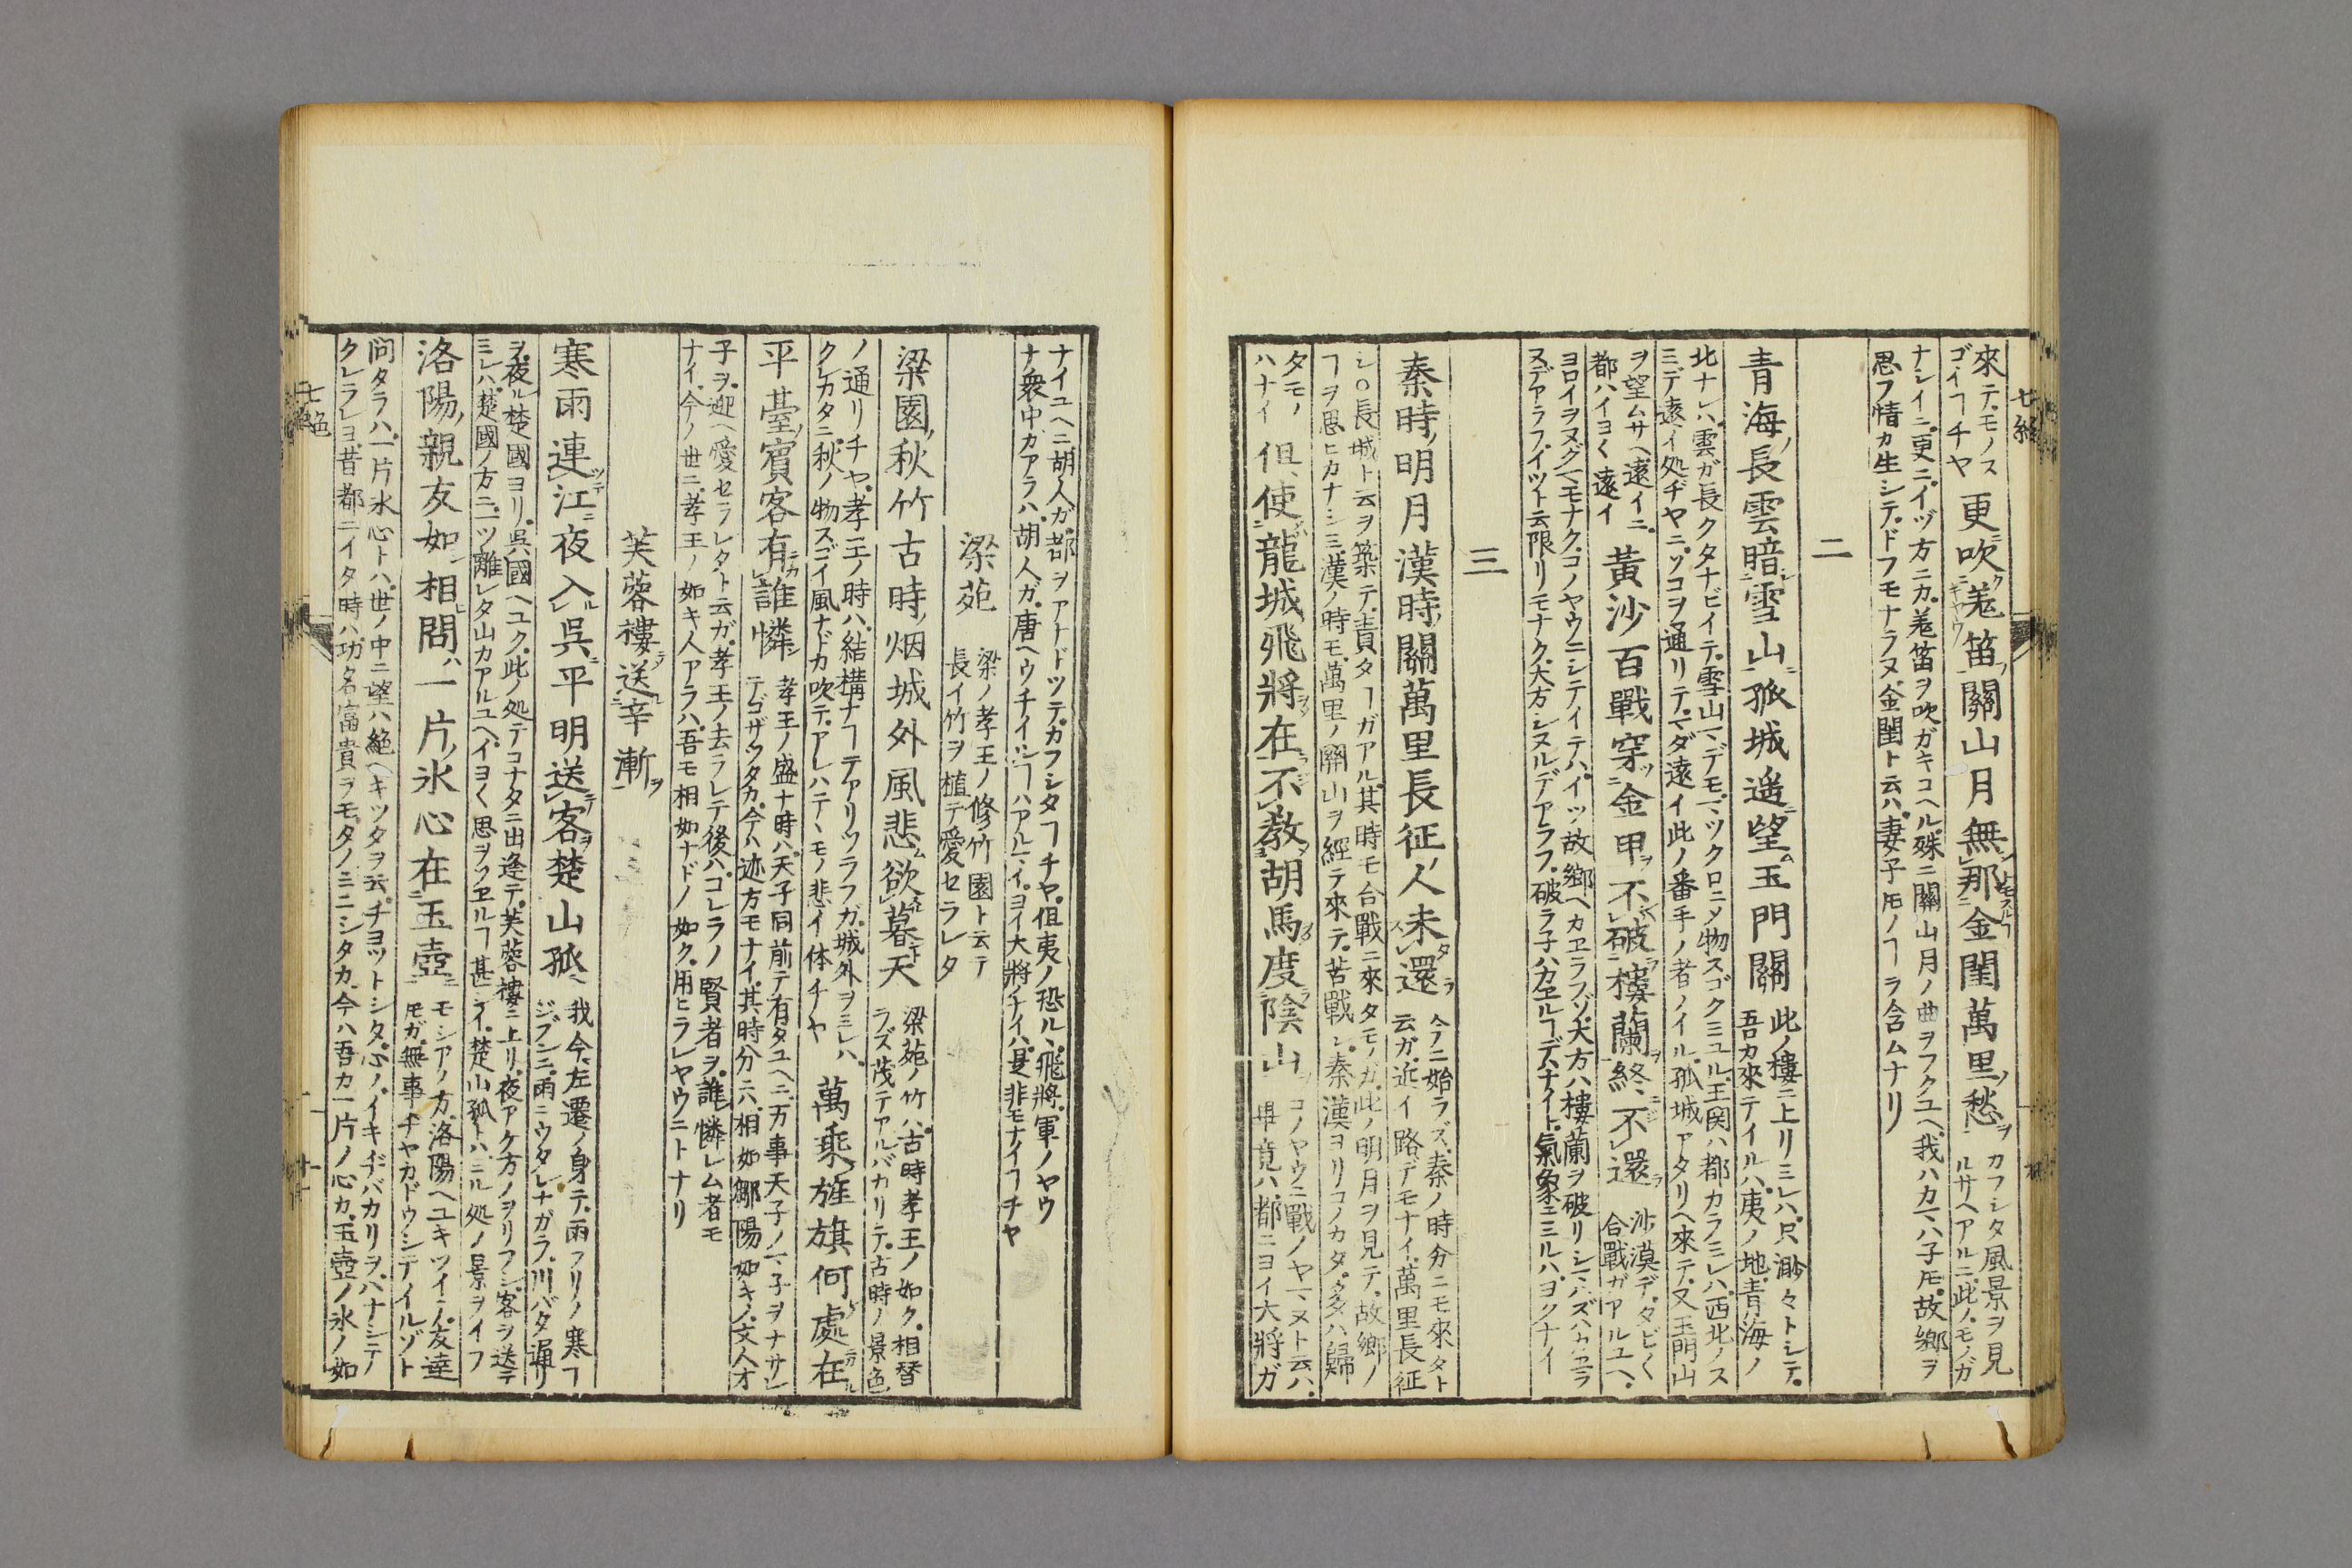 來テ.モノス
ゴイヿチヤ
更吹羗笛關山月無那金閨萬里愁
カフシタ風景ヲ見
ルサヘアルニ.此ノ.モノガ
ナシイニ.更ニ.イヅ方ニカ.羗笛ヲ吹ガキコヘル.殊ニ關山月ノ曲ヲフクユヘ.我ハカマハ子𪜈.故郷ヲ
思フ情カ生シテ.ドフモナラヌ.金閨ト云ハ.妻子𪜈ノヿラ含ムナリ
二
青海長雲暗雪山孤城遥望玉門關
此ノ樓ニ上リミレハ.只渺々トシテ.
吾カ來テイルハ.夷ノ地.青海ノ
北ナレハ.雲ガ長クタナビイテ.雪山マデモ.マツクロニメ物スゴクミユル.玉関ハ都カラミレハ.西北ノス
ミデ遠イ処ヂヤニ.ソコヲ通リテ.マダ遠イ此ノ番手ノ者ノイル.孤城アタリヘ來テ.又玉門山
ヲ望ムサヘ遠イニ.
都ハイヨ〱遠イ
黃沙百戰穿金甲不破樓蘭終不還
沙漠デ.タビ〱
合戰ガアルユヘ.
ヨロイヲヌグマモナク.コノヤウニシテイテハ.イツ故郷ヘカヱラフゾ.大方ハ樓蘭ヲ破リシマハズハカヱラ
ヌデアラフ.イツト云限リモナク.大方シヌルデアラフ.破ラ子ハカヱルヿデハナイト.氣象ニミルハ.ヨクナイ
三
秦時明月漢時關萬里長征人未還
今ニ始ラズ.秦ノ時分ニモ來タト
云ガ.近イ路デモナイ.萬里長征
シ○長城ト云ヲ築テ.責タヿガアル.其時モ合戰ニ來タモノガ.此ノ明月ヲ見テ.故郷ノ
ヿヲ思ヒカナシミ.漢ノ時モ.萬里ノ關山ヲ經テ來テ.苦戰シ.秦漢ヨリコノカタ.多クハ歸
タモノ
ハナイ
但使龍城飛將在不敎胡馬度陰山
コノヤウニ戰ノヤマヌト云ハ.
畢竟ハ.都ニヨイ大將ガ
ナイユヘニ胡人ガ.都ヲアナドツテ.カフシタヿチヤ.但夷ノ恐ル丶飛將軍ノヤウ
ナ衆中カアラハ.胡人ガ.唐ヘウチイルヿハアルマイ.ヨイ大將ノナイハ.是非モナイヿチヤ
梁苑
梁ノ孝王ノ修竹園ト云テ
長イ竹ヲ植テ愛セラレタ
梁園秋竹古時烟城外風悲欲暮天
梁苑ノ竹ハ.古時孝王ノ如ク.相替
ラズ茂テアルバカリテ.古時ノ景色
ノ通リチヤ.孝王ノ時ハ.結構ナヿテアリツラフガ.城外ヲミレハ.
クレカタニ.秋ノ物スゴイ風ナドカ吹テ.アレハテ丶モノ悲イ体チヤ
萬乘旌旗何處在
平臺賓客有誰憐
孝王ノ盛ナ時ハ.天子同前テ有タユヘニ.万事天子ノマ子ヲナサレ
テゴザツタカ.今ハ迹方モナイ.其時分ニハ.相如鄒陽如キノ.文人才
子ヲ.迎ヘ愛セラレタト云ガ.孝王ノ去ラレテ後ハ.コレラノ賢者ヲ.誰憐レム者モ
ナイ.今ノ世ニ.孝王ノ如キ人アラハ.吾モ相如ナドノ如ク.用ヒラレヤウニトナリ
芙蓉樓送辛漸
寒雨連江夜入呉平明送客楚山孤
我今左遷ノ身テ.雨フリノ寒ヿ
ジブンニ.雨ニウタレナガラ.川バタ通リ
ヲ.夜ル楚國ヨリ.呉國ヘユク.此ノ処テコナタニ出逢テ.芙蓉樓ニ上リ.夜アケ方ノヲリフシ.客ヲ送テ
ミレハ.楚國ノ方ニ.一ツ離レタ山カアルユヘ.イヨ〱思ヲソヱルヿ甚シイ.楚山孤トハ.ミル処ノ景ヲイフ
洛陽親友如相問一片氷心在玉壺
モシアノ方.洛陽ヘユキツイテ.友達
𪜈ガ.無事ヂヤカドウシテイルゾト
問タラハ.一片氷心トハ.世ノ中ニ望ハ絶ヘキツタヲ云.チヨツトシタ.心ノ.イキヂバカリヲ.ハナシテ
クレラレヨ.昔都ニイタ時ハ.功名富貴ヲモ.タノミニシタカ.今ハ吾カ一片ノ心カ.玉壺ノ氷ノ如